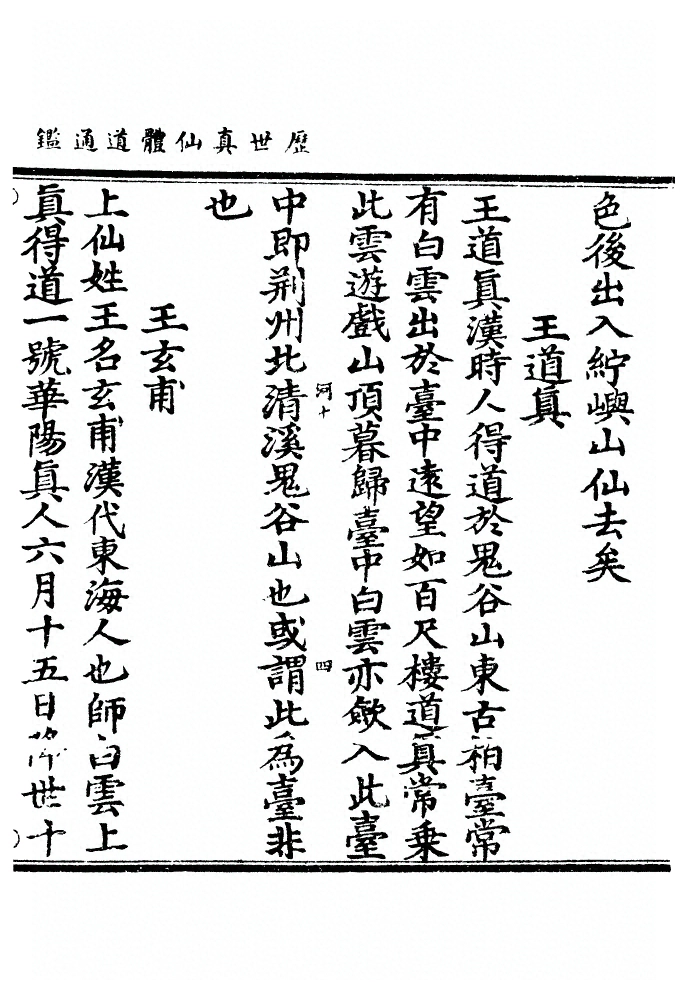 歷世真仙體道通鑑
色後出入紵嶼山仙去矣
王道真
王道真漢時人得道於鬼谷山東古柏臺常
有白雲出於臺中遠望如百尺樓道真常乗
此雲遊戲山頂暮歸臺中白雲亦歛入此臺
河十
四
中即荆州北清溪鬼谷山也或謂此為臺非
也
王玄甫
上仙姓王名玄甫漢代東海人也師白雲上
真得道一號華陽真人六月十五日降世十